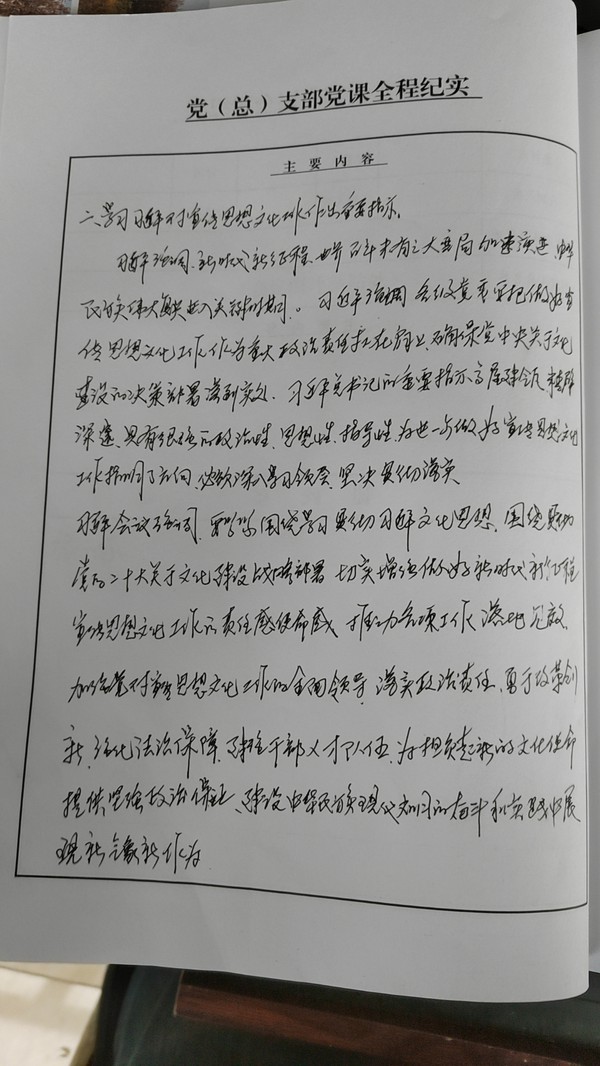 党（总）支部党课全程纪实
主要内容
二、学习习近平对宣传思想文化工作作出重要指示。
习近平强调,新时代新征程,世界百年未有之大变局加速演进,中华
民族伟大复兴进入关键时期。习近平强调各级党委要把做好宣
传思想文化工作作为重大政治责任扛在肩上,确保党中央关于文化
建设的决策部署落到实处.习近平总书记的重要指示高屋建瓴,
深邃,具有很强的政治性、思想性、指导性,为进一步做好宣传思想文化
工作指明了方向,必须深入学习领会,坚决贯彻落实
习近平会议强调,要紧紧围绕学习贯彻习近平文化思想,围绕贯彻
党的二十大关于文化建设战略部署 切实增强做好新时代新征程
宣传思想文化工作的责任感使命感,推动各项工作落地见效,
加强党对宣传思想文化工作的全面领导,落实政治责任,勇于改革创
新,强化法治保障,建强干部人才队伍,为担负起新的文化使命
提供坚强政治保证、建设中华民族现代文明的奋斗和实践中展
现新气象新作为